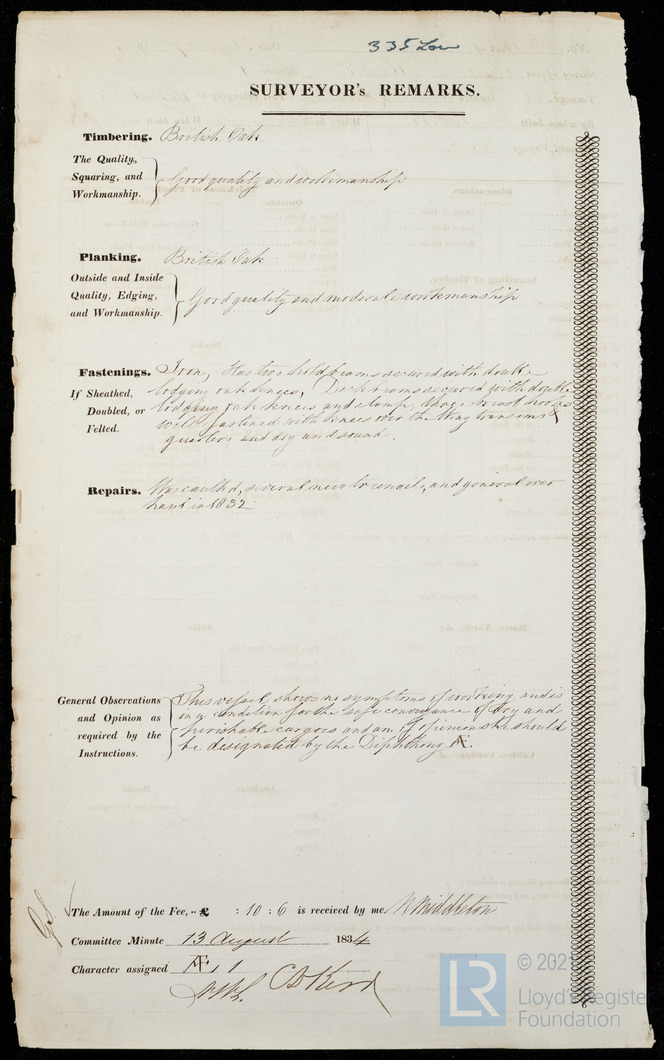 335 Lon
SURVEYOR's REMARKS.
Timbering. British Oak
The Quality, Squaring, and Workmanship. Good quality and workmanship
Planking. British Oak
Outside and Inside Quality, Edging, and Workmanship. Good quality and moderate workmanship
Fastenings. Iron, Has two hold beams secured with double
If Sheathed, Doubled, or Felted. lodging oak knees, Deck beams secured with double
lodging oak knees and clamp, three breast hooks
well fastened with knees over the Wing transoms &
quarters and dry and sound.
Repairs. Was caulked, several new treenails, and general over
haul in 1832
General Observations and Opinion as required by the Instructions. This vessel, shows no symptoms of working and is
in a condition for the safe conveyance of dry and
perishable cargoes and am of opinion she should
be designated by the Diphthong Æ.
The Amount of the Fee, .. £ : 10 : 6 is received by me, Middleton
Committee Minute 13 August 1834
Character assigned Æ, 1
© 202
Lloyd's Register
Foundation
LR